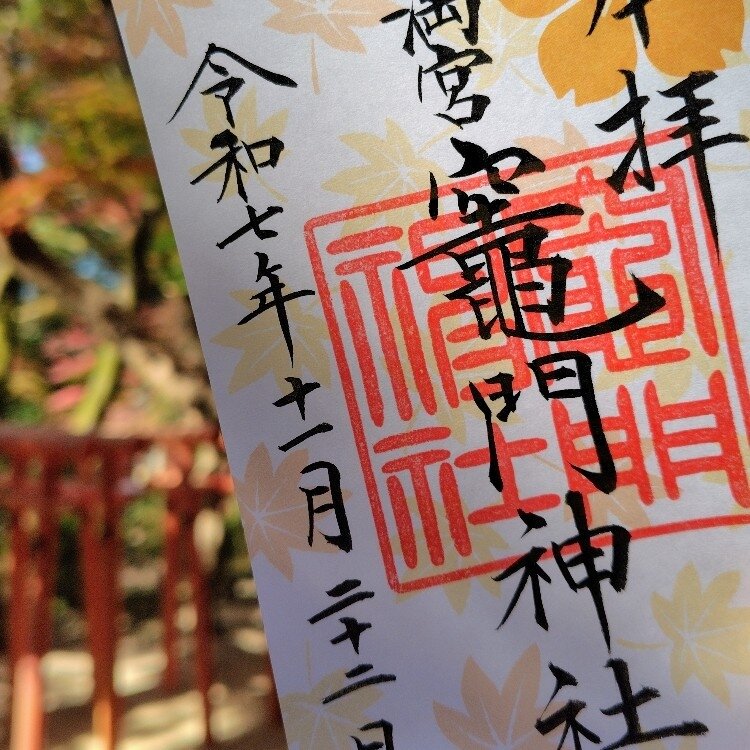 奉拝
満宮 竈門神社
竈門
神社
令和七年十一月二十二日